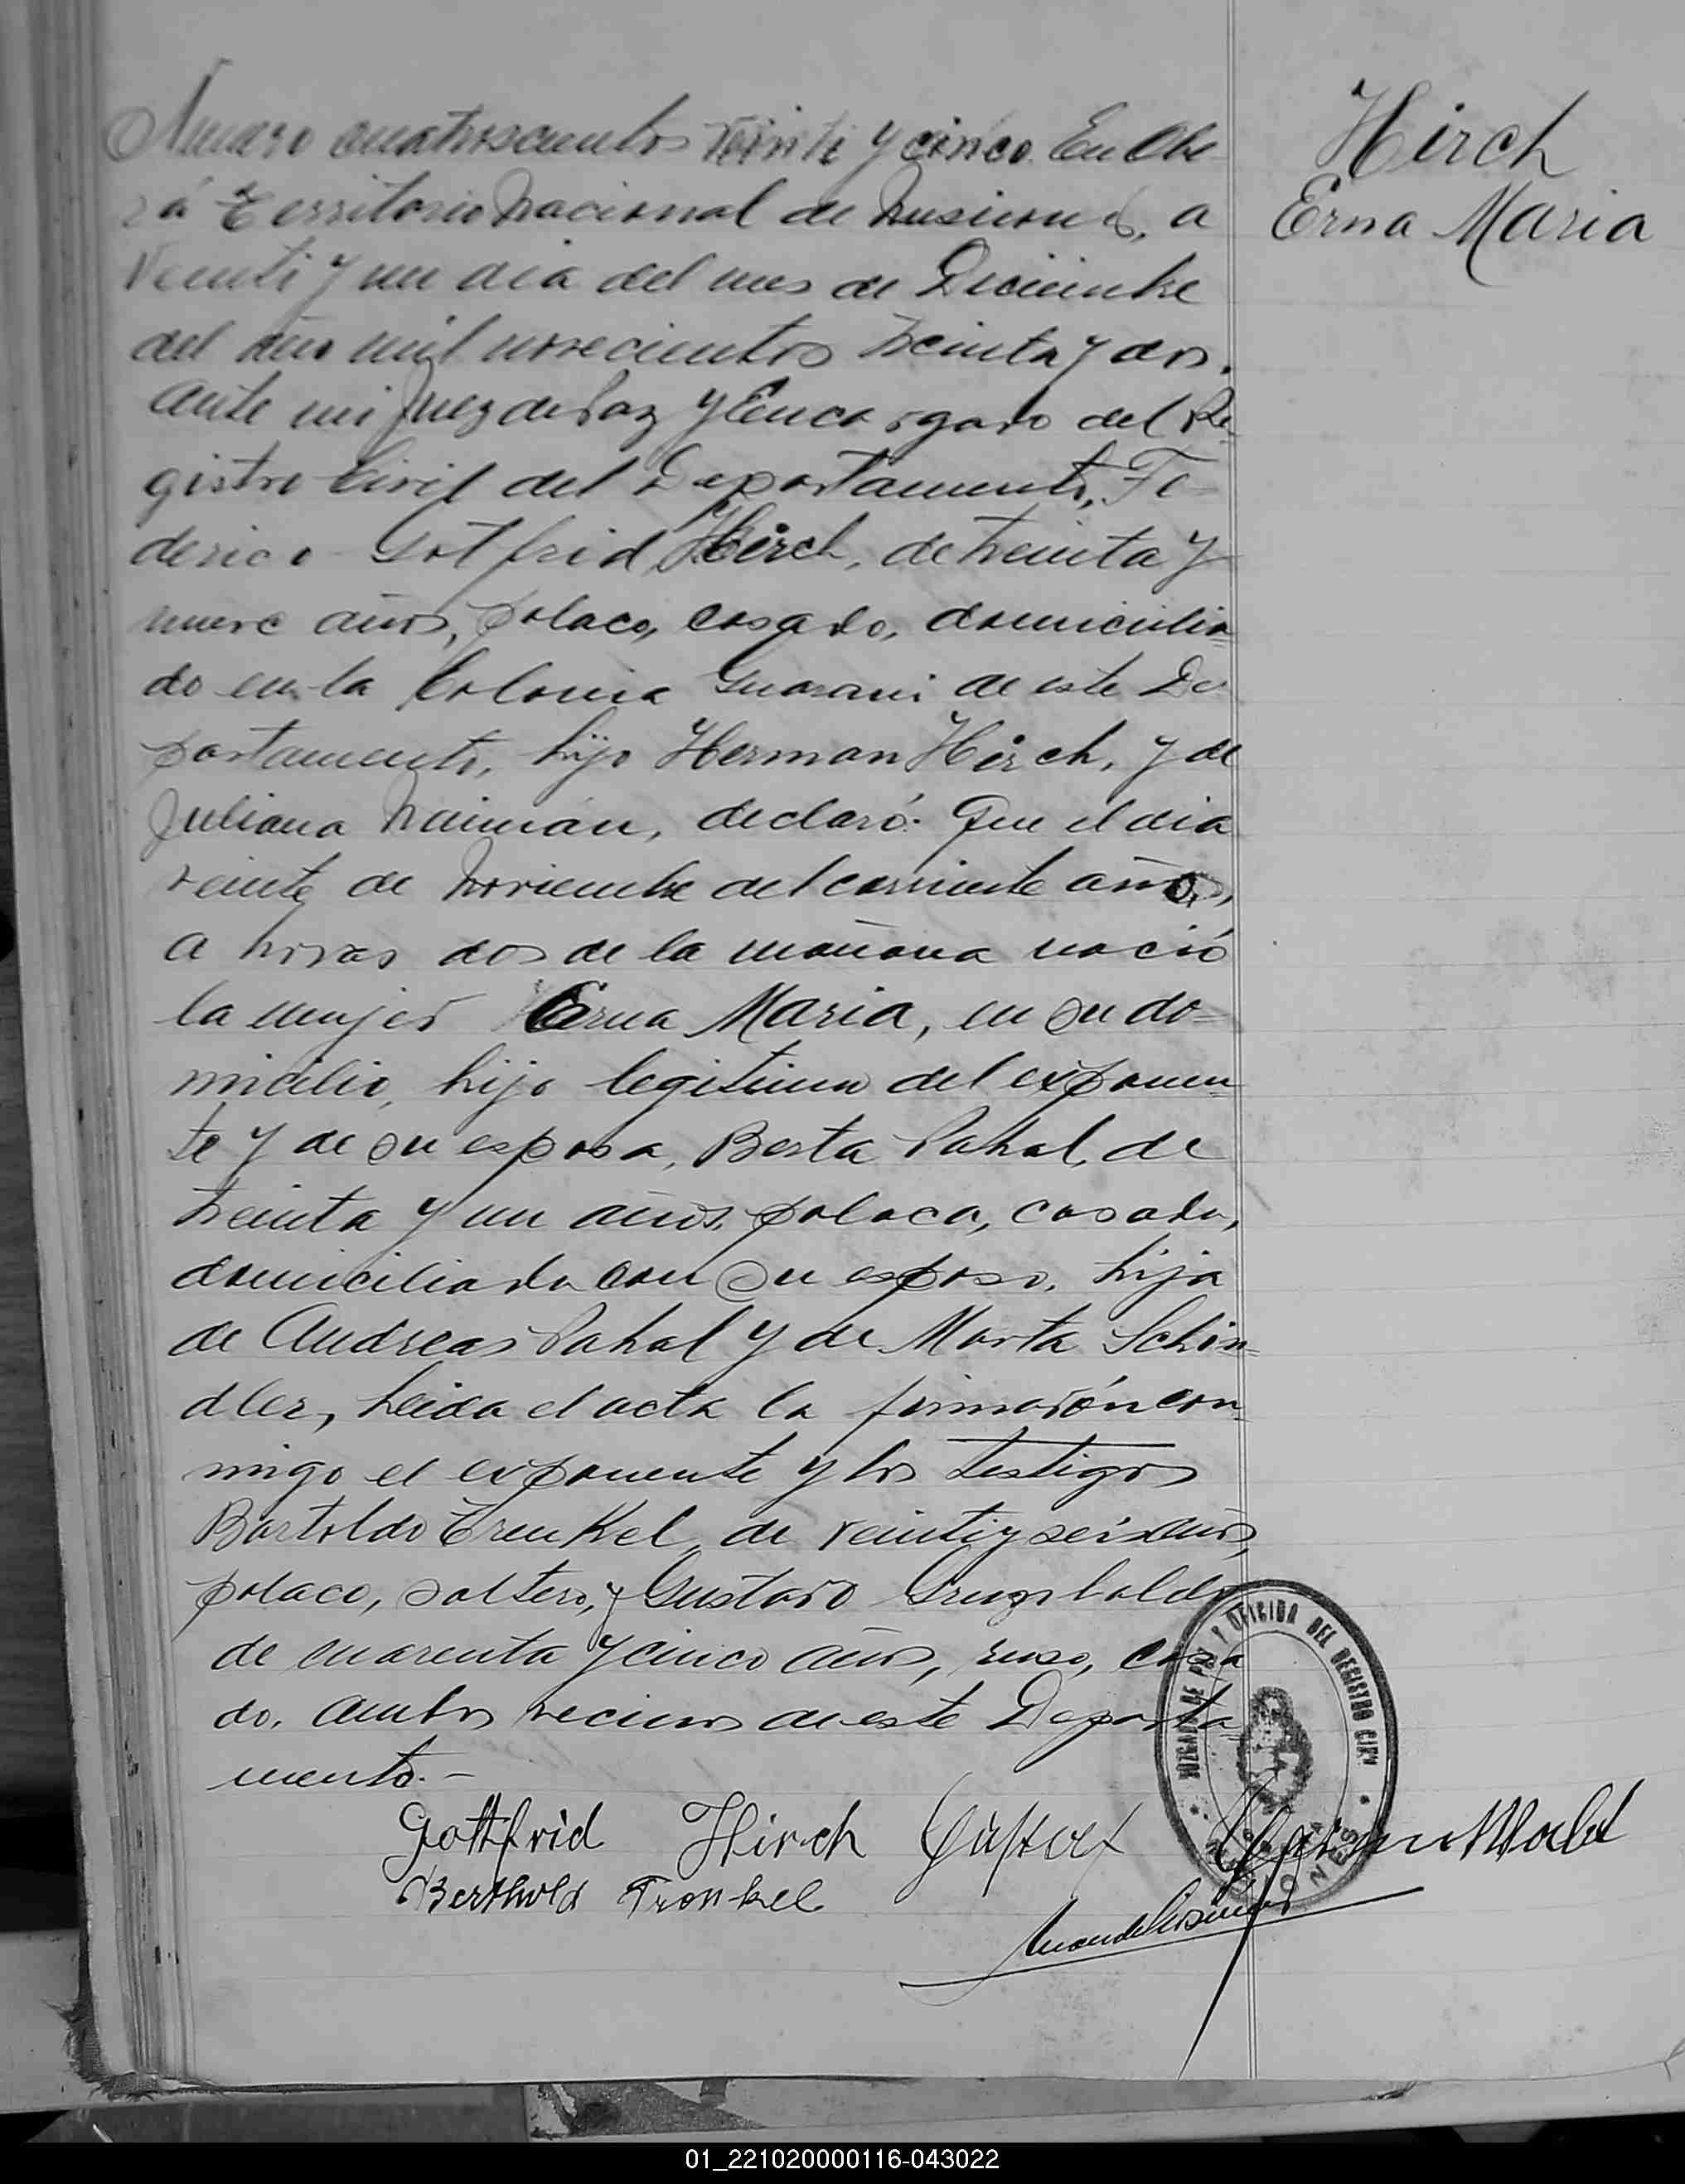 Numero cuatroscientos veinti y cinco. En Obe-
rá Territorio Nacional de Misiones, a
veinti y un dia del mes de Diciembre
del año mil novecientos treinta y dos.
Ante mi Juez de Paz y Encargado del Re-
gistro Civil del Departamento, Fe-
derico Gotfrid Hirch, de treinta y
nueve años, polaco, casado, domicilia-
do en la Colonia Guarani de este De-
partamento, hijo Herman Hirch, y de
Juliana Naimán, declaró: Que el dia
veinte de Noviembre del corriente año,
a horas dos de la mañana nació
la mujer Erna Maria, en su do-
micilio, hijo legitimo del exponen-
te y de su esposa, Berta Pahal, de
treinta y un años, polaca, casada,
domiciliada con su esposo, hija
de Andreas Pahal y de Marta Schin-
dler, Leida el acta la firmarón con-
migo el exponente y los testigos
Bartoldo Trenkel, de veinti y seis años,
polaco, soltero, y Gustavo
de cuarenta y cinco años, ruso, casa-
do. Ambos vecinos de este Departa-
mento.-
Hirch
Erna Maria
JUZGADO DE PAZ Y OFICINA DEL REGISTRO CIVIL
Gottfrid Hirch Gustav
Berthold Tronkel
01_221020000116-043022